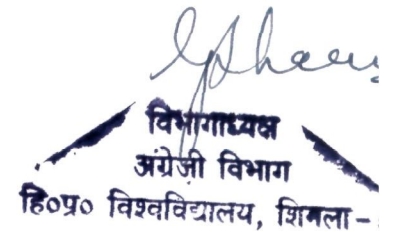 विभागाध्यक्ष
अंग्रेजी विभाग
हि०प्र० विश्वविद्यालय, शिमला-